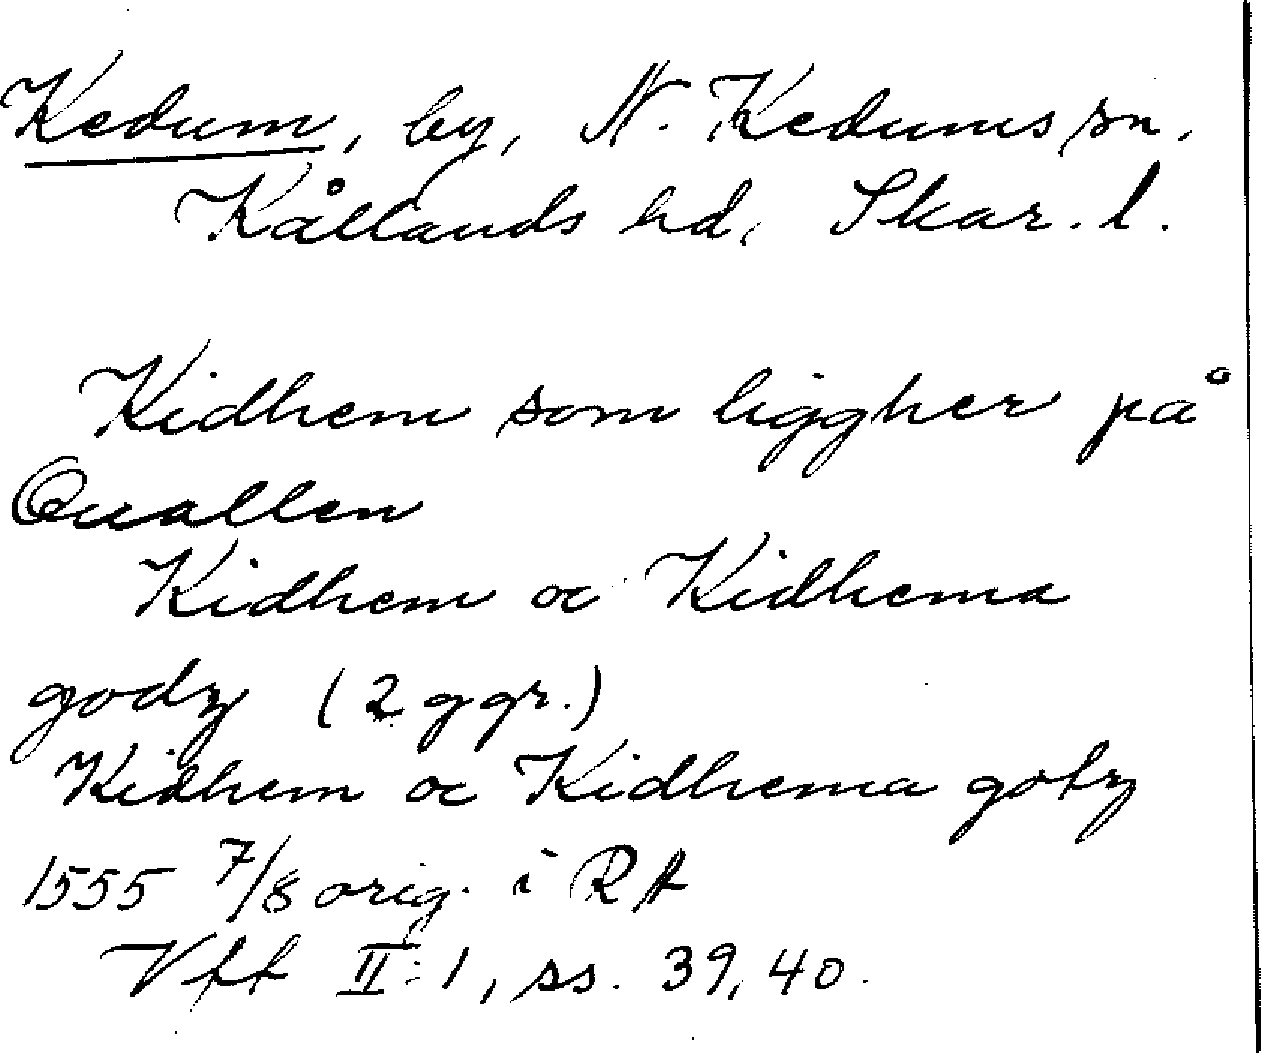 Kedum, by, N. Kedums sn,
Kållands hd, Skar. l.
Kidhem som liggher på
Quallen
Kidhem oc Kidhema
godz (2 ggr.)
Kidhem oc Kidhema gotz
1555 7/8 orig. i RA
Vff II:1, ss. 39, 40.